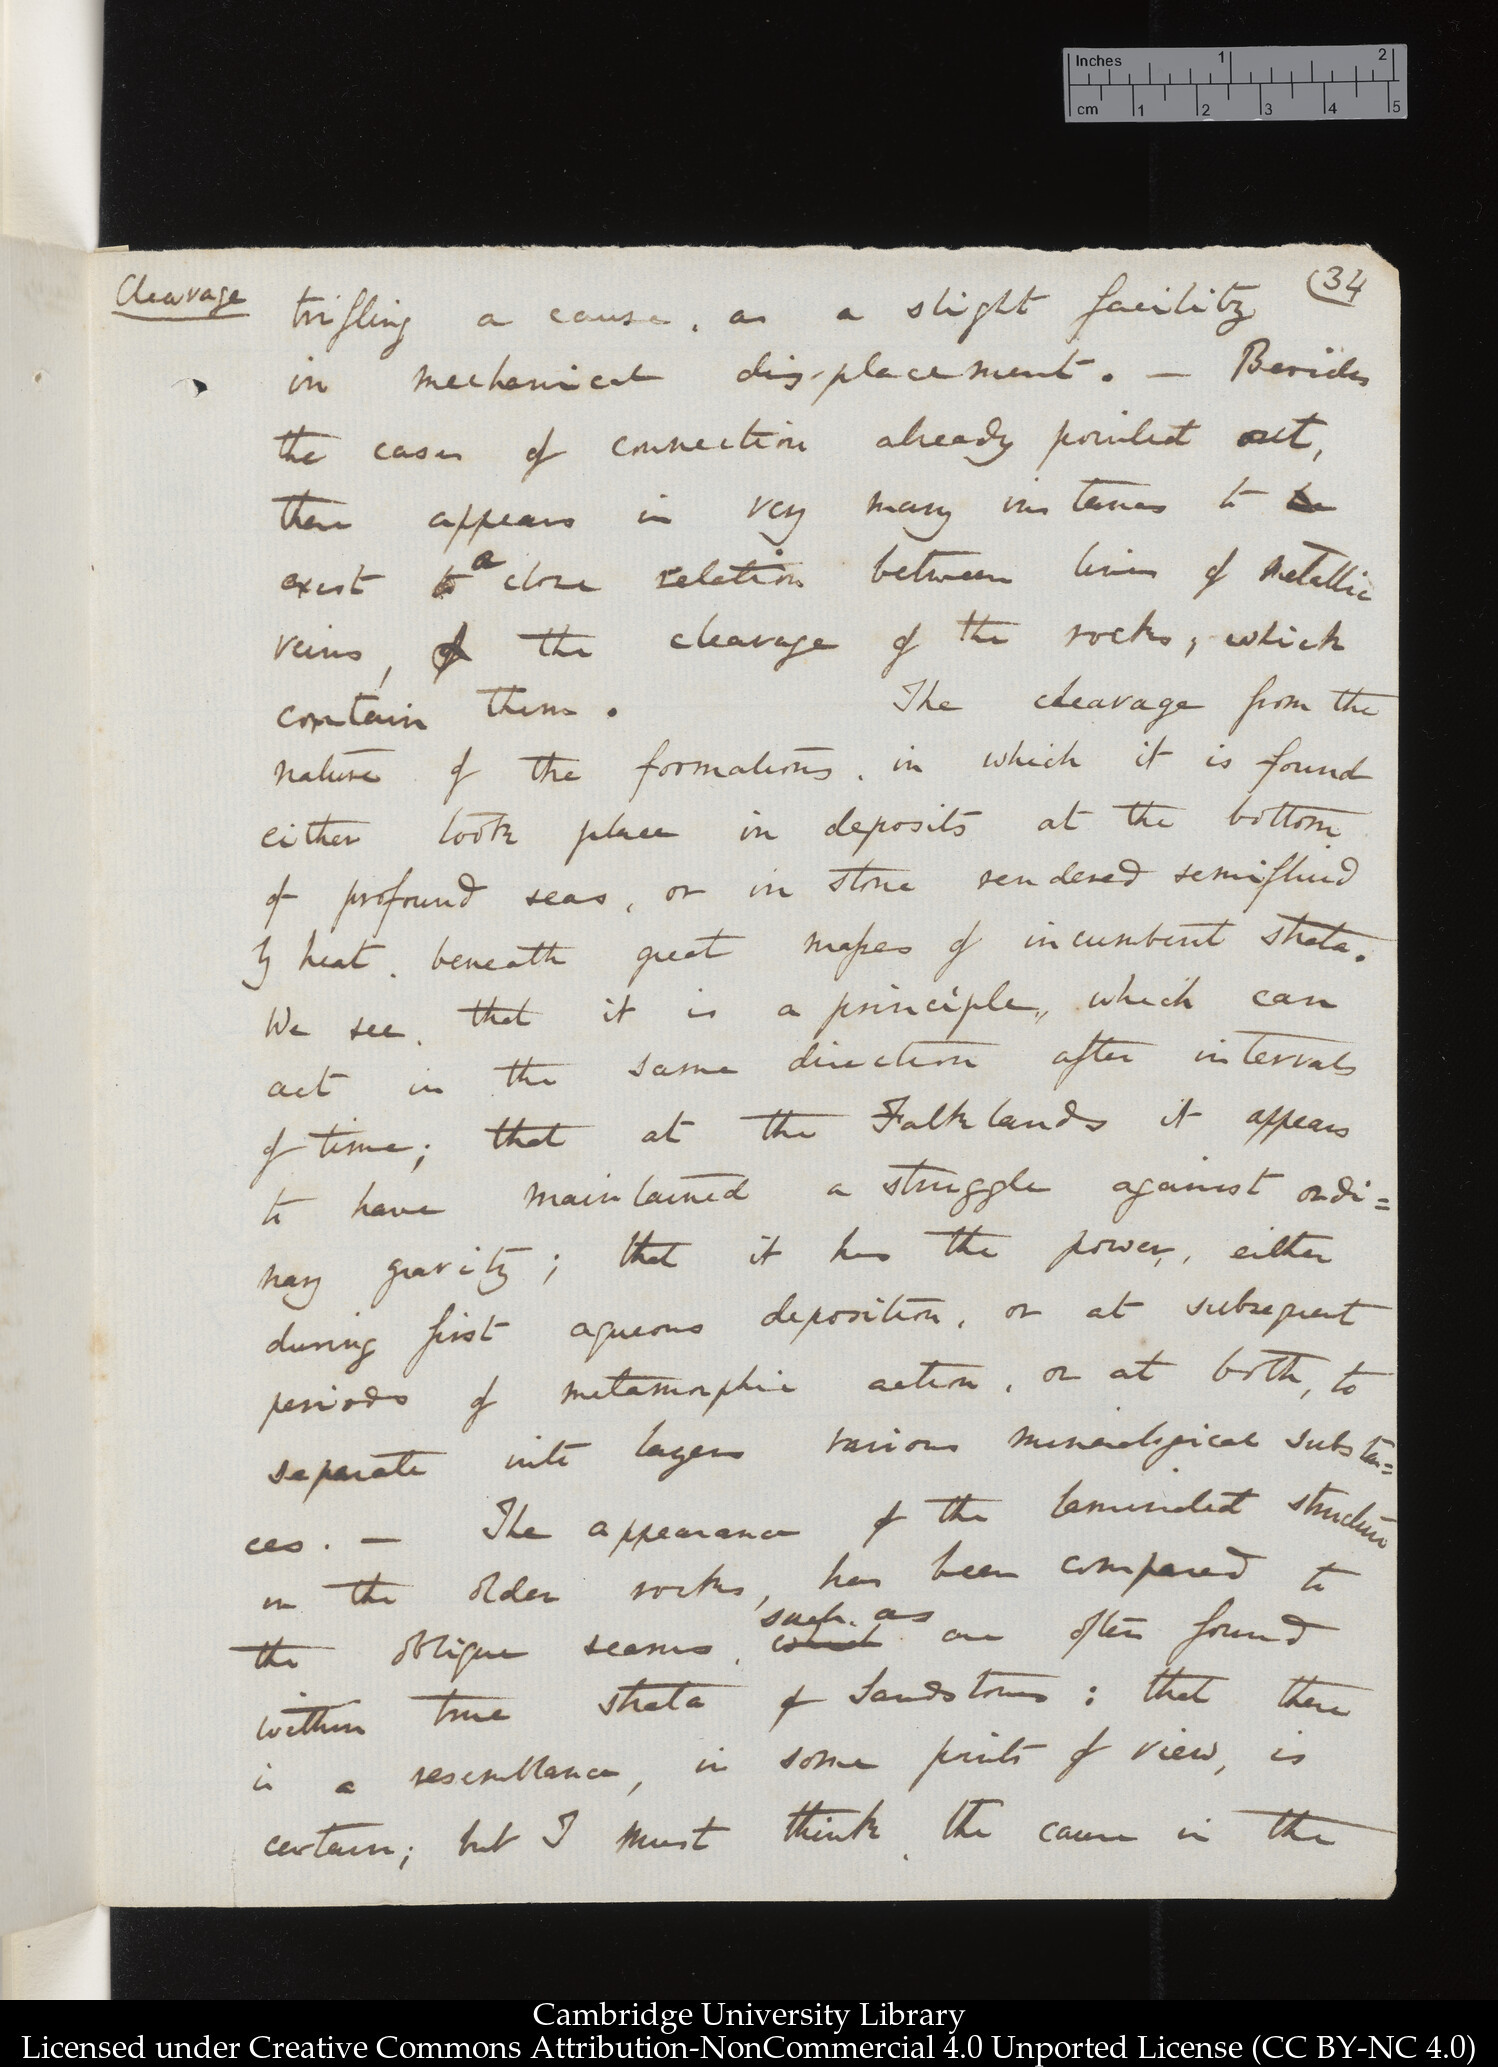 Inches 1 2
cm 1 2 3 4 5
Cleavage
(34
trifling a cause, as a slight facility
in mechanical dis-placement. — Besides
the cases of connection already pointed out,
there appears in very many instances to be
exist to a close relation between lines of metallic
veins, & the cleavage of the rocks, which
contain them. The cleavage from the
nature of the formations, in which it is found
either took place in deposits at the bottom
of profound seas, or in stone rendered semifluid
by heat, beneath great masses of incumbent strata.
We see, that it is a principle, which can
act in the same direction after intervals
of time; that at the Falklands it appears
to have maintained a struggle against ordi=
nary gravity; that it has the power, either
during first aqueous deposition, or at subsequent
periods of metamorphic action, or at both, to
separate into layers various mineralogical substan=
ces. — The appearance of the laminated structure
in the older rocks, has been compared to
such as
the oblique seams, are often found
within true strata of Sandstones: that there
is a resemblance, in some points of view, is
certain; but I must think, the cause in the
Cambridge University Library
Licensed under Creative Commons Attribution-NonCommercial 4.0 Unported License (CC BY-NC 4.0)